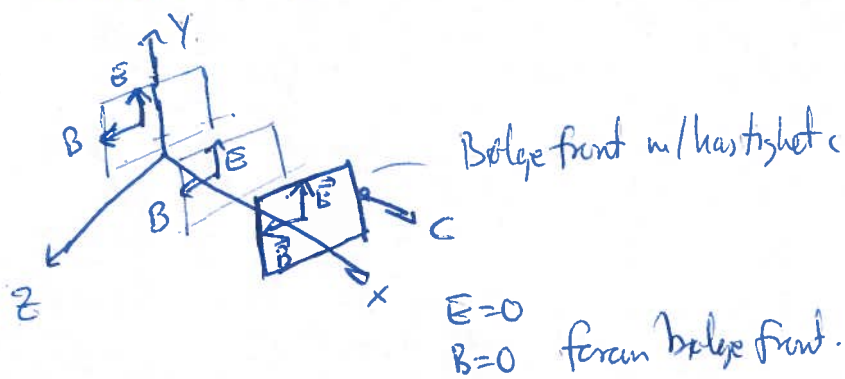 Y
E
B
E
B
Bølgefront m/hastighet c
E
B
C
Z
X
E=0
B=0 foran bølgefront.